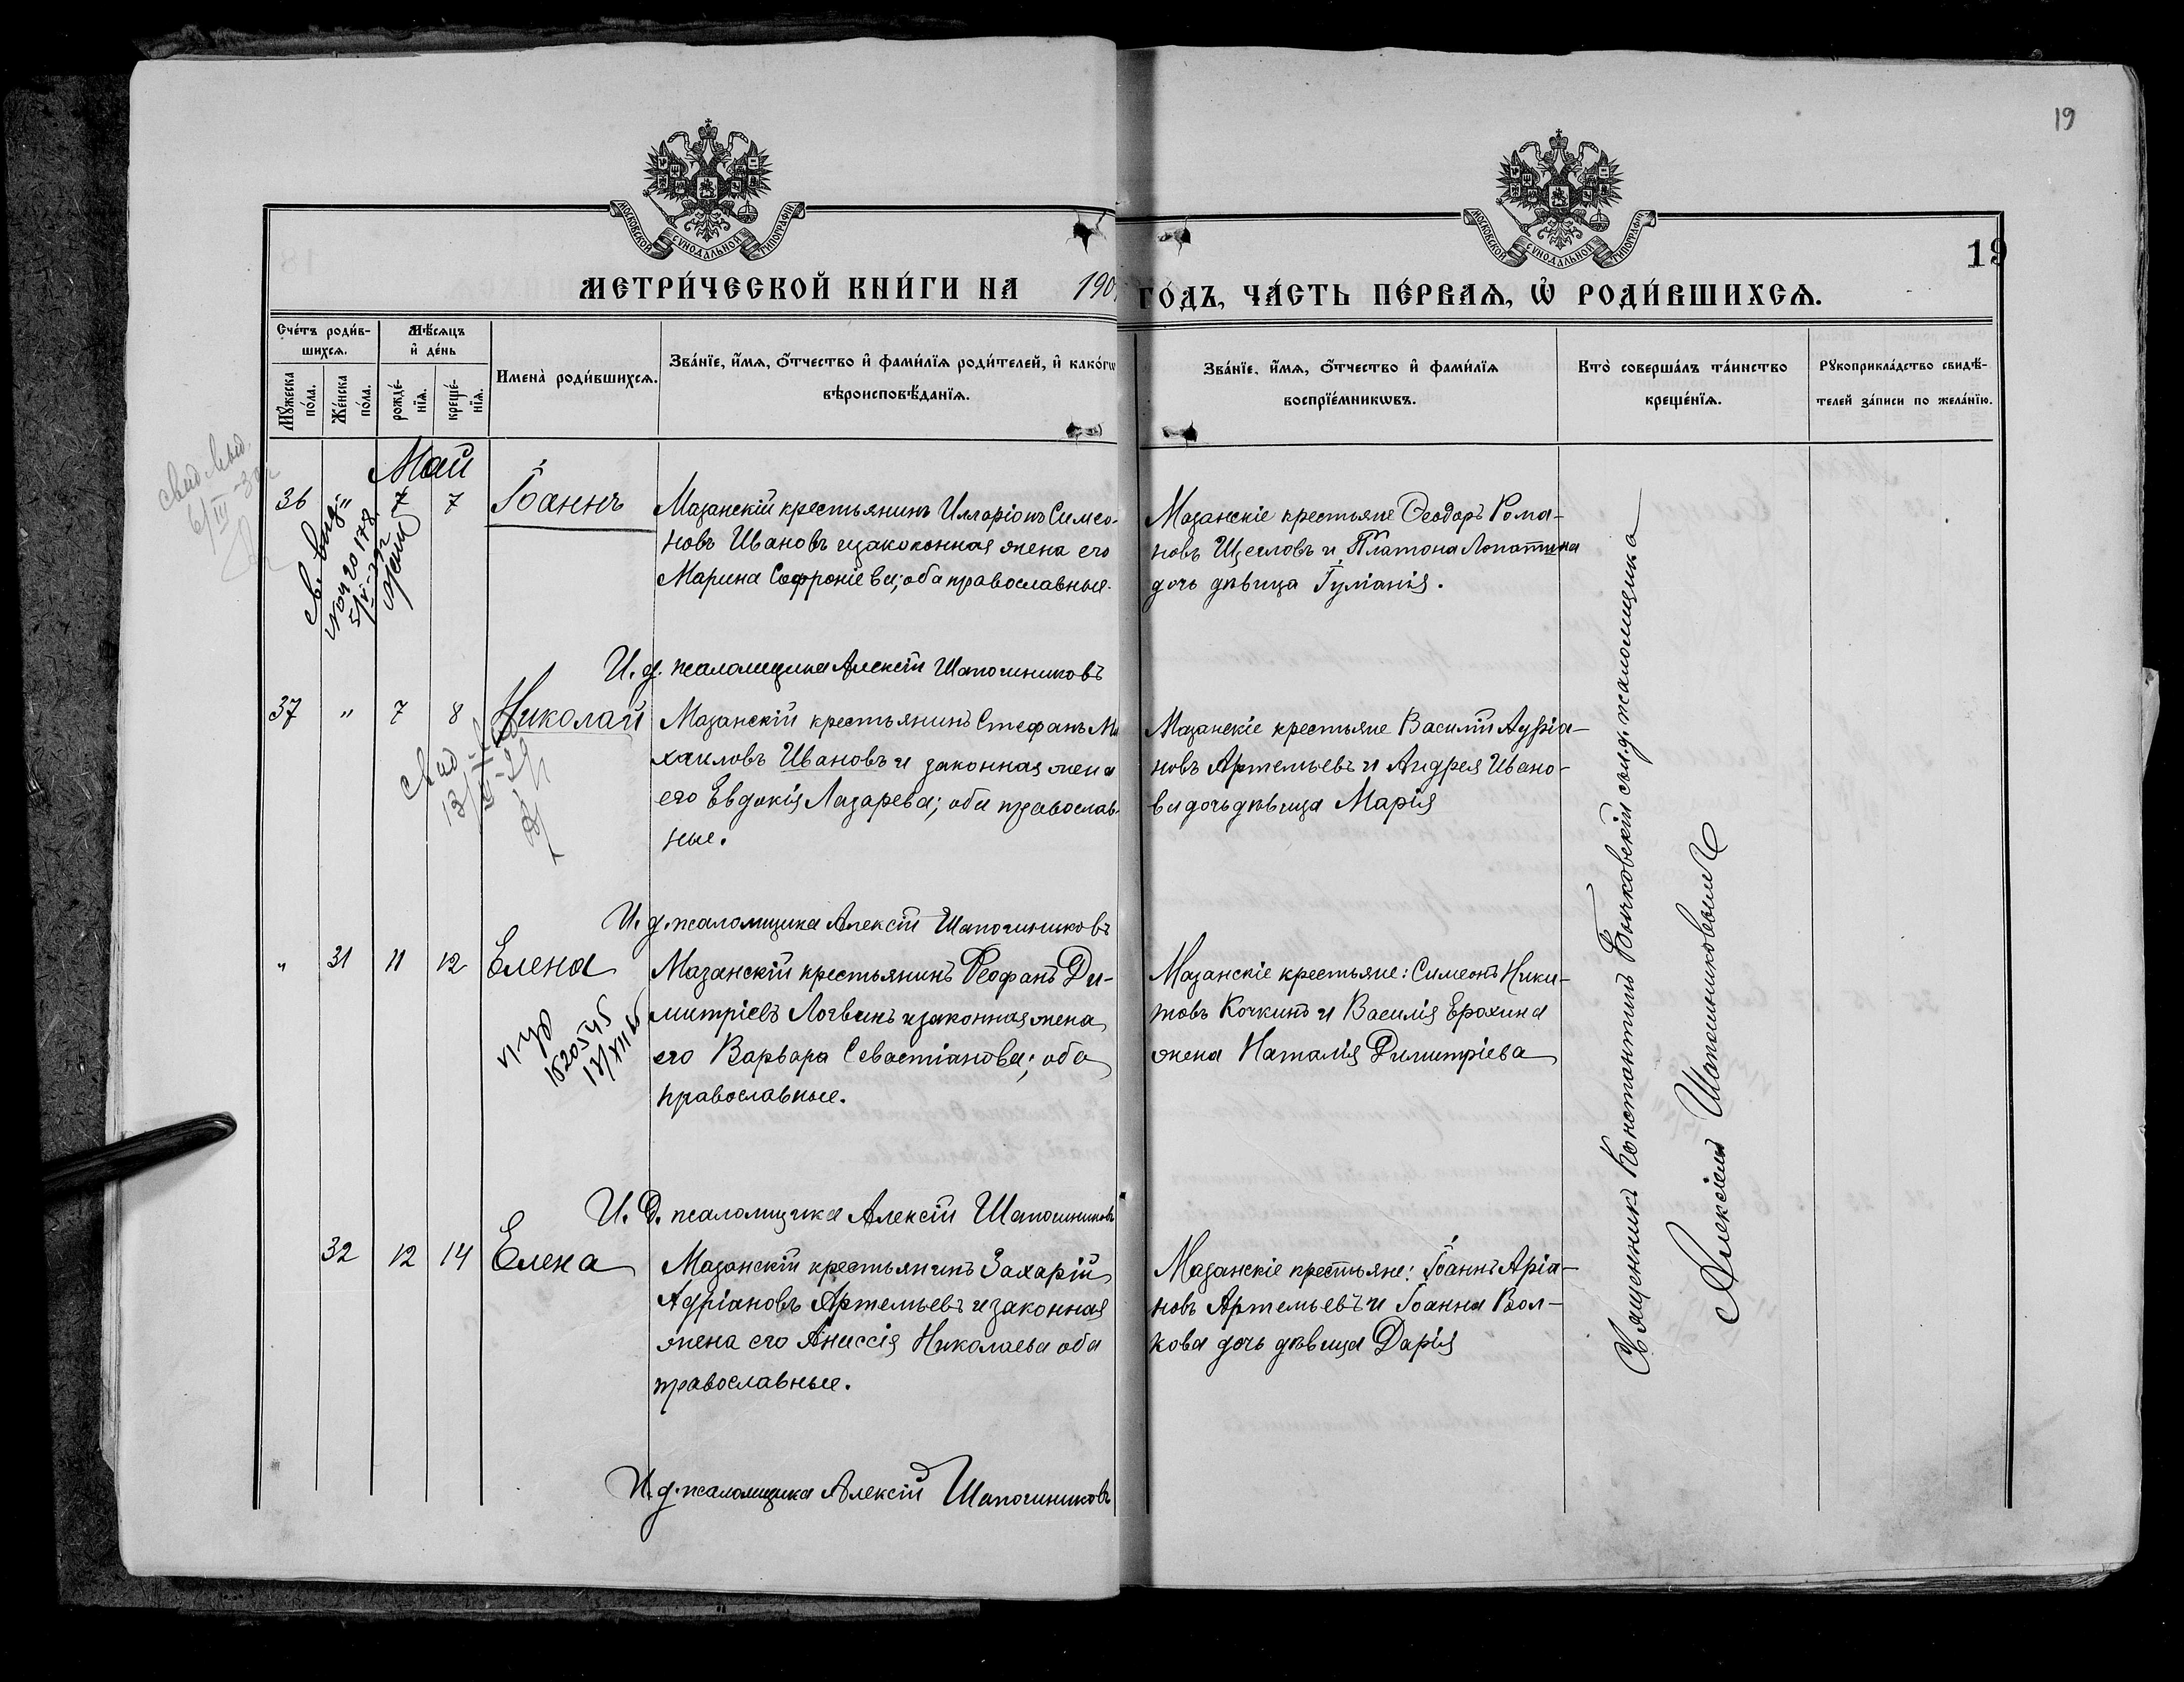 19
МОСКОВСКОЙ СУНОДАЛЬНОЙ ТИПОГРАФІИ
МОСКОВСКОЙ СУНОДАЛЬНОЙ ТИПОГРАФІИ
19
МЕТРИ́ЧЕСКОЙ КНИ́ГИ НА 190
ГО́ДЪ, ЧА́СТЬ ПЕ́РВАѦ, Ѡ҆ РОДИ́ВШИХСѦ.
Сче́тъ роди́в-
шихсѧ.
Мꙋ́жеска
по́ла.
Же́нска
по́ла.
Мѣ́сѧцъ
и҆ де́нь
рожде́-
нїѧ.
креще́-
нїѧ.
Имена̀ роди́вшихсѧ.
Зва́нїе, и҆́мѧ, ѻ҆́тчество и҆ фами́лїѧ роди́телей, и҆ како́гѡ
вѣроисповѣ́данїѧ.
Зва́нїе, и҆́мѧ, ѻ҆́тчество и҆ фами́лїѧ
воспрїе́мникѡвъ.
Кто̀ соверша́лъ та́инство
креще́нїѧ.
Рꙋкоприкла́дство свидѣ́-
телей за́писи по жела́нїю.
Май
36 " 7 7 Іоаннъ
Мазанскій крестьянинъ Илларіонъ Симео-
новъ Ивановъ и законная жена его
Марина Софроніева; оба православные.
Мазанскіе крестьяне Ѳеодоръ Рома-
новъ Щегловъ и Платона Лопатина
дочь дѣвица Іуліанія.
И. д. псаломщика Алексій Шапошниковъ
37 " 7 8 Николай
Мазанскій крестьянинъ Стефанъ Ми
хаиловъ Ивановъ и законная жена
его Евдокія Лазарева; оба православ-
ные.
Мазанскіе крестьяне Василій Адріа-
новъ Артемьевъ и Андрея Ивано-
ва дочь дѣвица Марія
И. д. псаломщика Алексій Шапошниковъ
" 31 11 12 Елена
Мазанскій крестьянинъ Ѳеофанъ Ди-
митріевъ Логвинъ и законная жена
его Варвара Севастіанова; оба
православные.
Мазанскіе крестьяне: Симеонъ Ники-
товъ Кочкинъ и Василія Ерохина
жена Наталія Димитріева
И. д. псаломщика Алексій Шапошниковъ
32 12 14 Елена
Мазанскій крестьянинъ Захарій
Адріановъ Артемьевъ и законная
жена его Аниссія Николаева оба
православные.
Мазанскіе крестьяне: Іоаннъ Аріа-
новъ Артемьевъ и Іоанна Вол-
кова дочь дѣвица Дарія
И. д. псаломщика Алексій Шапошниковъ
Священникъ Константинъ Бычковскій съ и. д. псаломщика
Алексіемъ Шапошниковымъ